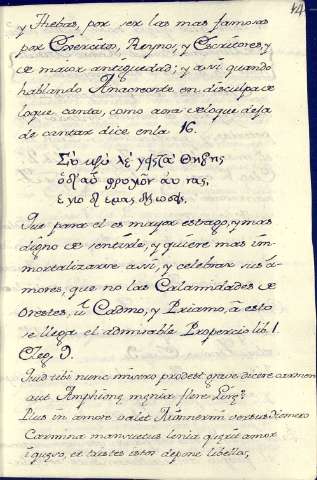 14
y Thebas, por ser las mas famosas
por Exercitos, Reyno, y Escritores, y
de maior antiguedad; y assi quando
hablando Anacreonte en disculpa de
loque canta, como aora de loque deja
de cantar dice enla 16.
Σὺ μὲν λέγεις τὰ Θηβης
ὁ δ' αὖ φρυγῶν αυτας,
ἐγὼ δ' ἐμας ἁλωσεις,
Que para el es mayor estrago, y mas
digno de sentirse, y quiere mas im-
mortalizarse assi, y celebrar sus a-
mores, que no las Calamidades de
Orestes, ù Cadmo, y Priamo, à esto
se llega el admirable Propercio lib. 1
Eleg. 9.
Quid tibi nunc misero prodest grave dicere carmen
aut Amphioniæ mænia flere lyræ?
Plus in amore valet Mimnermi versus Homero
Carmina mansuetus lenia quærit amor
i quæso, et tristes istos depone libellos,